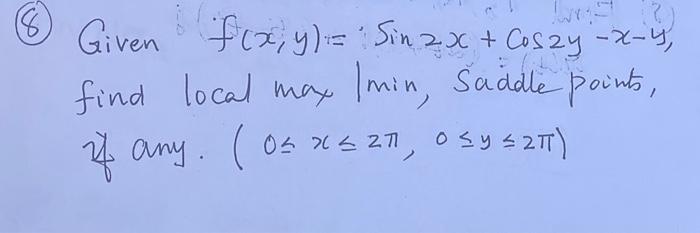 ⑧ Given f(x,y) = Sin 2x + Cos 2y - x - y,
find local max / min, Saddle points,
if any. ( 0 ≤ x ≤ 2π, 0 ≤ y ≤ 2π)